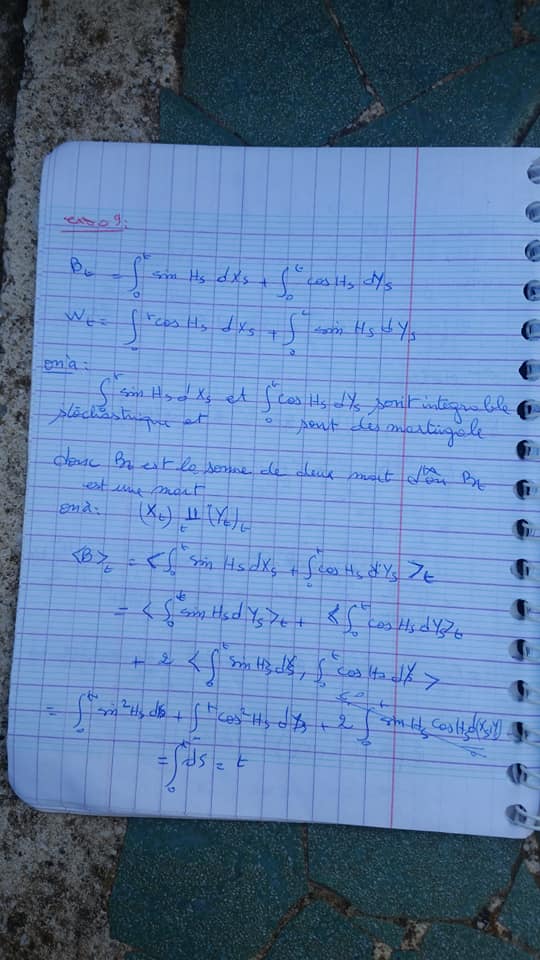 exo 9:
B_t = ∫_0^t sin H_s dX_s + ∫_0^t cos H_s dY_s
W_t = ∫_0^t cos H_s dX_s + ∫_0^t sin H_s dY_s
on a:
∫_0^t sin H_s dX_s et ∫_0^t cos H_s dY_s sont intégrable
stochastique et sont des martigale
donc B_t est la somme de deux mart d'où B_t
est une mart
on a: (X_t)_t ⫫ (Y_t)_t
<B>_t = <∫_0^t sin H_s dX_s + ∫_0^t cos H_s dY_s>_t
= <∫_0^t sin H_s dY_s>_t + <∫_0^t cos H_s dY_s>_t
+ 2 <∫_0^t sin H_s dX_s, ∫_0^t cos H_s dY_s>
= ∫_0^t sin² H_s ds + ∫_0^t cos² H_s ds + 2 ∫_0^t sin H_s cos H_s d<X,Y>_s
= ∫_0^t ds = t